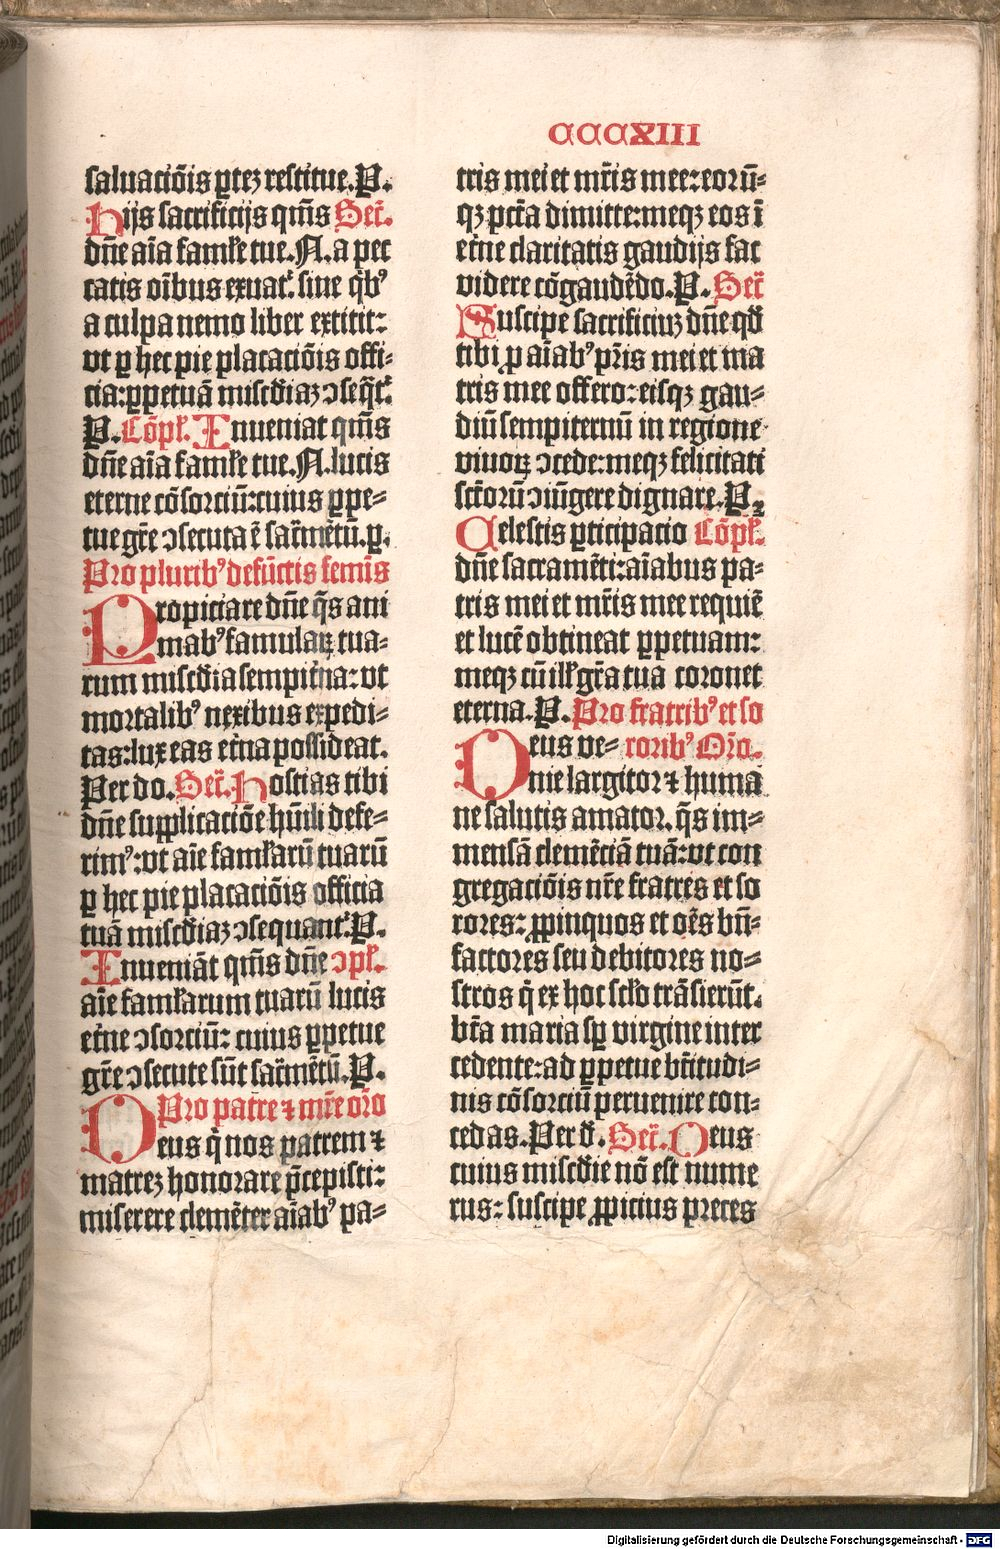 CCCXIII
saluaciõis ꝑtez restitue. P.
Hijs sacrificijs qm̃s Secr̃.
dñe aĩa famłe tue. N. a pec
catis oĩbus exuat᷑. sine qͥbꝰ
a culpa nemo liber extitit:
vt ꝑ hec pie placaciõis offi-
cia: ꝑpetuã misc̃diaz ↄseq̃t᷑.
P. Cõpł. Inueniat qm̃s
dñe aĩa famłe tue. N. lucis
eterne cõsorciũ: cuius ꝑpe-
tue gr̃e ↄsecuta ẽ sacr̃mẽtũ. p.
Pro pluribꝰ defũctis femĩs
Propiciare dñe q̃s ani
mabꝰ famulaꝝ tua-
rum misc̃dia sempit̃na: vt
mortalibꝰ nexibus expedi-
tas: lux eas et̃na possideat.
Per do. Secr̃. Hostias tibi
dñe supplicaciõe hũili defe-
rimꝰ: vt aĩe famłarũ tuarũ
ꝑ hec pie placaciõis officia
tuã misc̃diaz ↄsequant᷑. P.
Inueniãt qm̃s dñe ↄpł.
aĩe famłarum tuarũ lucis
et̃ne ↄsorciũ: cuius ꝑpetue
gr̃e ↄsecute sũt sacr̃mẽtũ. P.
Pro patre ⁊ mr̃e or̃o
Deus q̃ nos patrem ⁊
matrez honorare p̃cepisti:
miserere clemẽter aĩabꝰ pa-
tris mei et mr̃is mee: eorũ-
qꝫ pctã dimitte: meqꝫ eos ĩ
et̃ne claritatis gaudijs fac
videre cõgaudẽdo. P. Secr̃
Suscipe sacrificiuz dñe qđ
tibi ꝓ aĩabꝰ pr̃is mei et ma
tris mee offero: eisqꝫ gau-
diũ sempiternũ in regione
viuoꝝ ↄcede: meqꝫ felicitati
sctõrũ ↄiũgere dignare. P.
Celestis ꝑticipacio Cõpł.
dñe sacramẽti: aĩabus pa-
tris mei et mr̃is mee requiẽ
et lucẽ obtineat ꝑpetuam:
meqꝫ cũ illł gr̃a tua coronet
eterna. P. Pro fratribꝰ et so
Deus ve- roribꝰ Or̃o.
nie largitor ⁊ humã
ne salutis amator. q̃s im-
mensã clemẽciã tuã: vt con
gregaciõis nr̃e fratres et so
rores: ꝓpinquos et oẽs bñ-
factores seu debitores no-
stros q̃ ex hoc scło trãsierũt.
btã maria sꝑ virgine inter
cedente: ad ꝑpetue bt̃itudi-
nis cõsorciũ peruenire con-
cedas. Per d̃. Secr̃. Deus
cuius misc̃die nõ est nume
rus: suscipe ꝓpicius preces
Digitalisierung gefördert durch die Deutsche Forschungsgemeinschaft - DFG